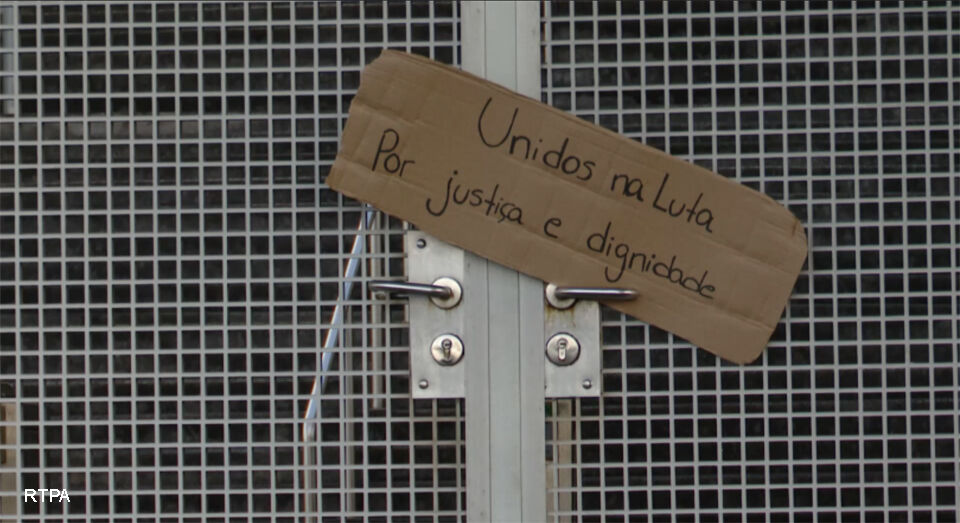 Unidos na Luta
Por justiça e dignidade
RTPA